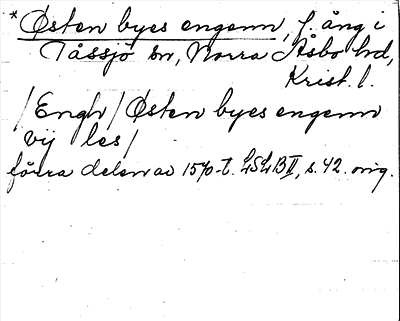 *Østen byes engenn, f. äng i
Tåssjö sn, Norra Åsbo hd,
Krist. l.
/Engh/ Østen byes engenn
vij les/
förra delen av 1570-t. LSLB II, s. 42. orig.